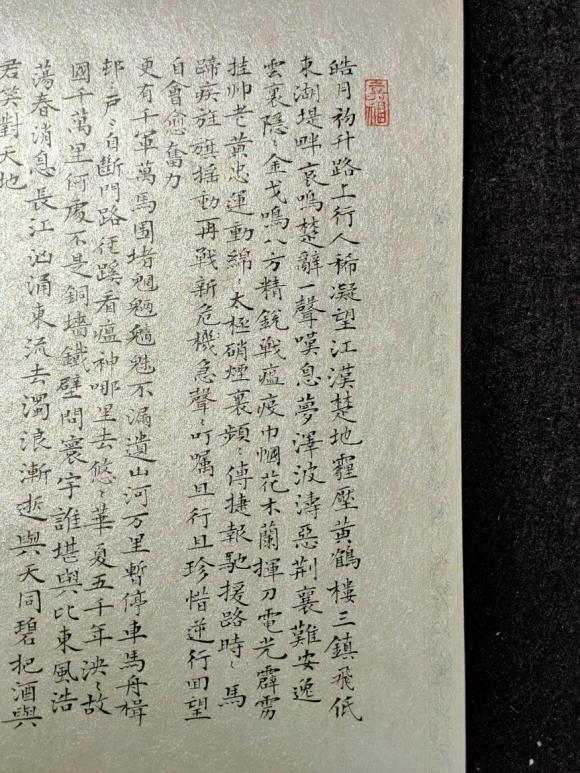 皓月初升路上行人稀凝望江漢楚地霾壓黃鶴樓三鎮飛低
東湖堤畔哀鳴楚辭一聲嘆息夢澤波濤惡荊襄難安逸
雲裏隱〻金戈鳴八方精銳戰瘟疫巾幗花木蘭揮刀電光霹靂
挂帅老黃忠運動綿〻太極硝煙裏頻〻傳捷報馳援路時〻馬
蹄疾旌旗搖動再戰新危機急聲〻叮嘱且行且珍惜逆行回望
自會愈奮力
更有千軍萬馬圍堵魍魎魑魅不漏遺山河万里暫停車馬舟楫
邨戶自斷門路徑蹊看瘟神哪里去悠〻華夏五千年泱〻故
國千萬里何處不是銅墻鐵壁問寰宇誰堪與比東風浩
蕩春消息長江汹涌東流去濁浪漸逝與天同碧把酒與
君笑對天地